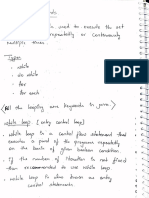 used to execute the set
repeatedly or continuously
multiple times.
Types:
- while
- do while
- for
- for each
(All the looping are keywords in java.)
while loop: (entry control loop)
- while loop is a control flow statement that
executes a part of the programs repeatedly
on the basis of given boolean condition.
- If the number of iteration is not fixed
then recommended to use while loop.
- while loop is also known as entry
control statements.